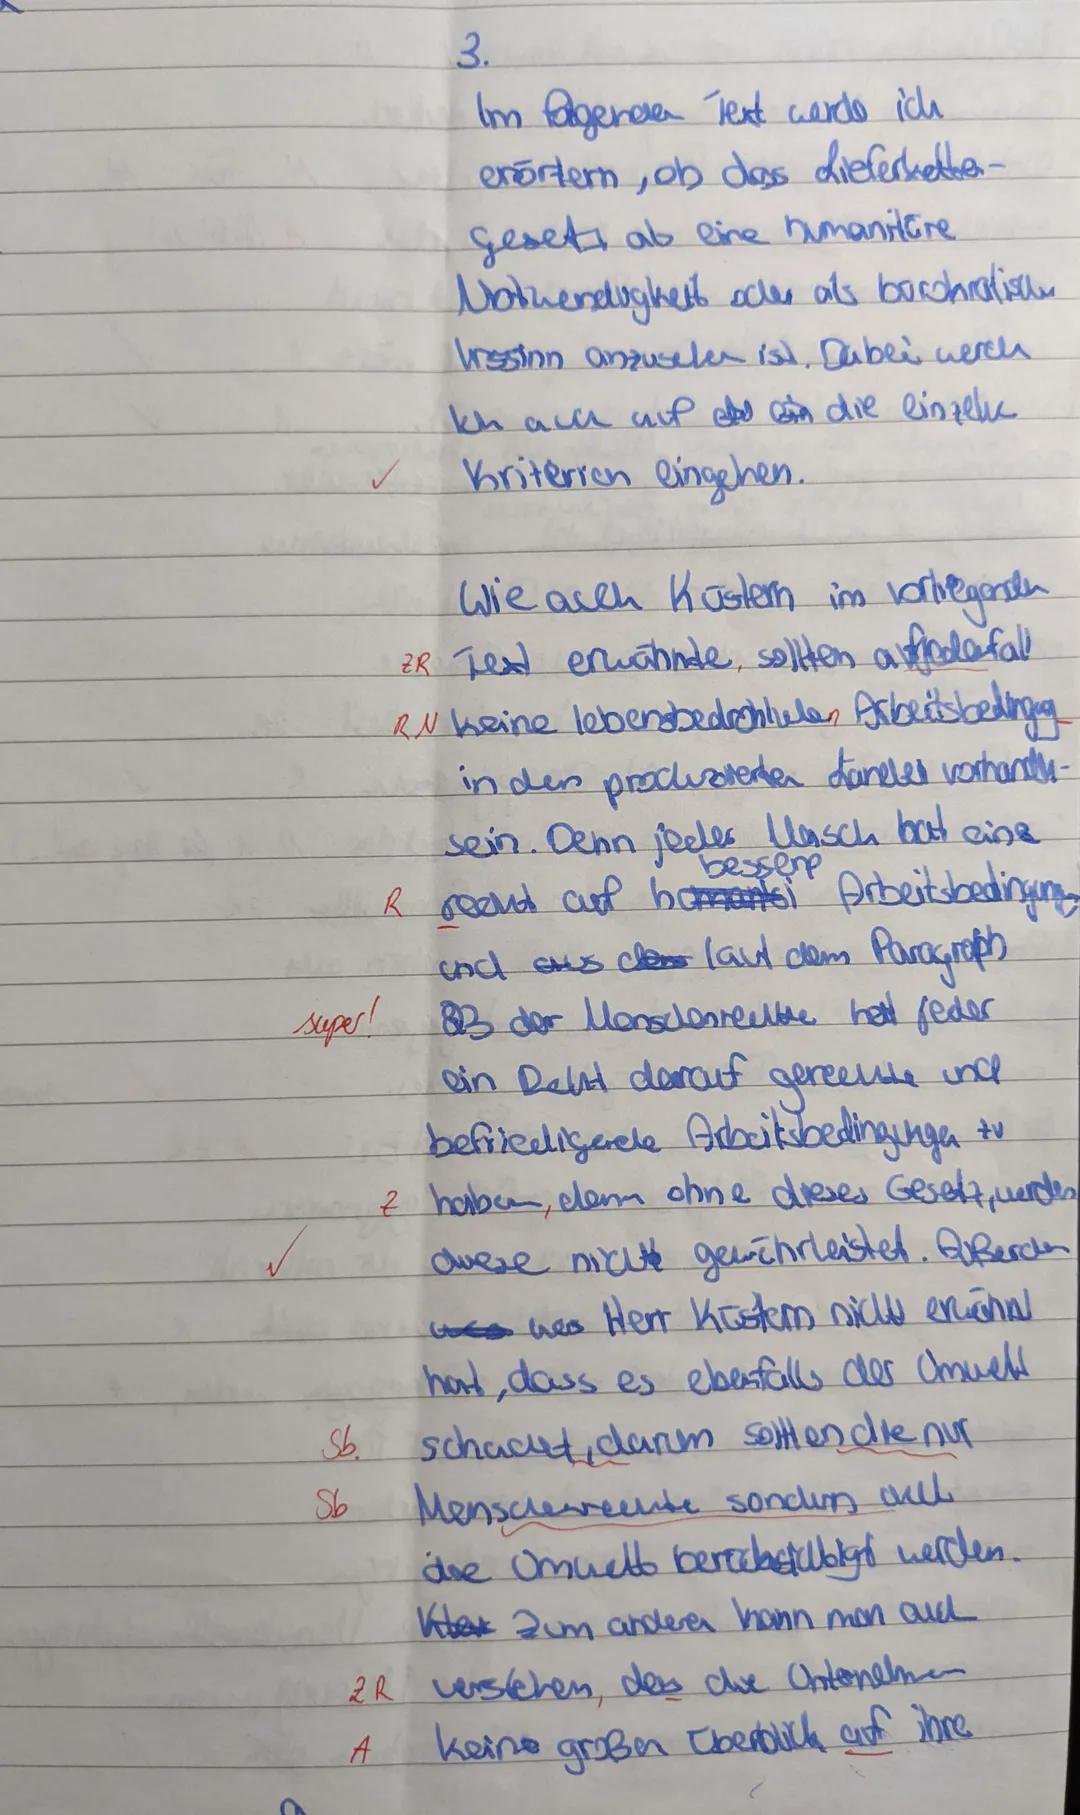 3.
Im folgenden Text werde ich
erörtern, ob das Lieferketten-
gesetz ab eine humanitäre
Notwendigkeit oder als bürokratischer
Irrsinn anzusehen ist. Dabei werde
ich auch auf die einzelne
✓ Kriterien eingehen.
Wie auch Küstern im vorliegenden
ZR Text erwähnte, sollten aufjedafall
R N keine lebensbedrohlichen Arbeitsbedingung
in den produzierten Länder vorhanden
sein. Denn jeder Mensch hat eine
bessere
R recht auf Arbeitsbedingung
und laut dem Paragraph
super! 23 der Menschenrechte hat jeder
ein Recht darauf gerechte und
befriedigende Arbeitsbedingungen zu
Z haben, denn ohne dieses Gesetz, werden
✓ diese nicht gewährleistet. Außerdem
was Herr Küstern nicht erwähnt
hat, dass es ebenfalls der Umwelt
Sb. schadet, darum sollten die nur
Sb Menschenrechte sondern auch
die Umwelt berücksichtigt werden.
Zum anderen kann man auch
ZR verstehen, das die Unternehmen
A keine großen Überblick auf ihre